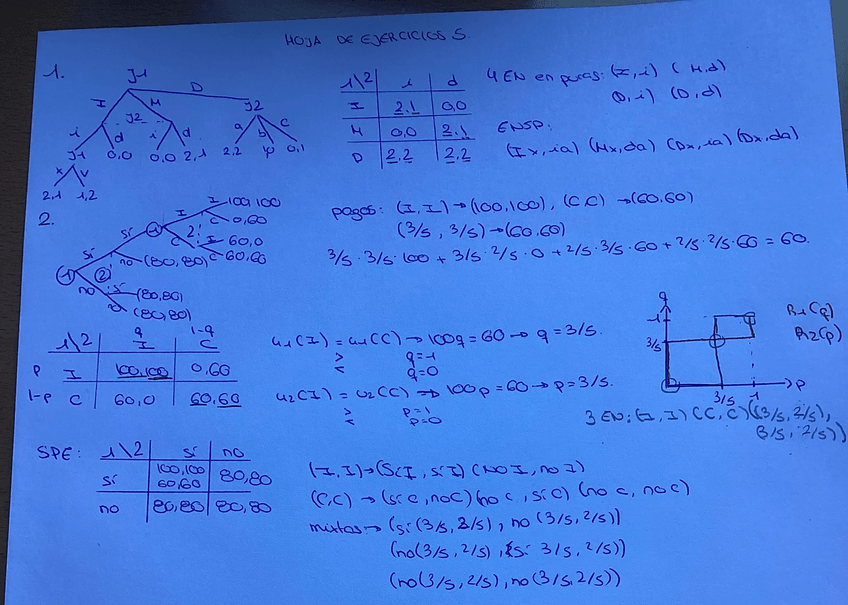 HOJA DE EJERCICIOS 5.
1.
J1
I M D
J2 J2
i d i d a b c
J1 0,0 0,0 2,1 2,2 0,1
x v
2,1 1,2
1\2 i d
I 2,1 0,0
M 0,0 2,1
D 2,2 2,2
4 EN en puras: (I,i) (M,d)
(D,i) (D,d)
ENSP:
(Ix,ia) (Mx,da) (Dx,ia) (Dx,da)
2.
sí 1 I I 100,100
2 C 0,60
C I 60,0
C 60,60
1 sí 2 no (80,80)
no sí (80,80)
(80,80)
pagos: (I,I)→(100,100), (C,C)→(60,60)
(3/5, 3/5)→(60,60)
3/5·3/5·100 + 3/5·2/5·0 + 2/5·3/5·60 + 2/5·2/5·60 = 60.
q 1-q
1\2 I C
p I 100,100 0,60
1-p C 60,0 60,60
u1(I) = u1(C) → 100q = 60 → q = 3/5.
> q=1
< q=0
u2(I) = u2(C) → 100p = 60 → p = 3/5.
> p=1
< p=0
q
1
3/5
3/5 1 p
R1(q)
R2(p)
3 EN: (I,I) (C,C) ((3/5, 2/5),
(3/5, 2/5))
SPE:
1\2 sí no
sí 100,100 60,60 80,80
no 80,80 80,80
(I,I)→(SÍ I, sí I) (NO I, no I)
(C,C) → (sí c, no C) (no c, sí c) (no c, no c)
mixtos → (sí (3/5, 2/5), no (3/5, 2/5))
(no (3/5, 2/5), (sí 3/5, 2/5))
(no (3/5, 2/5), no (3/5, 2/5))